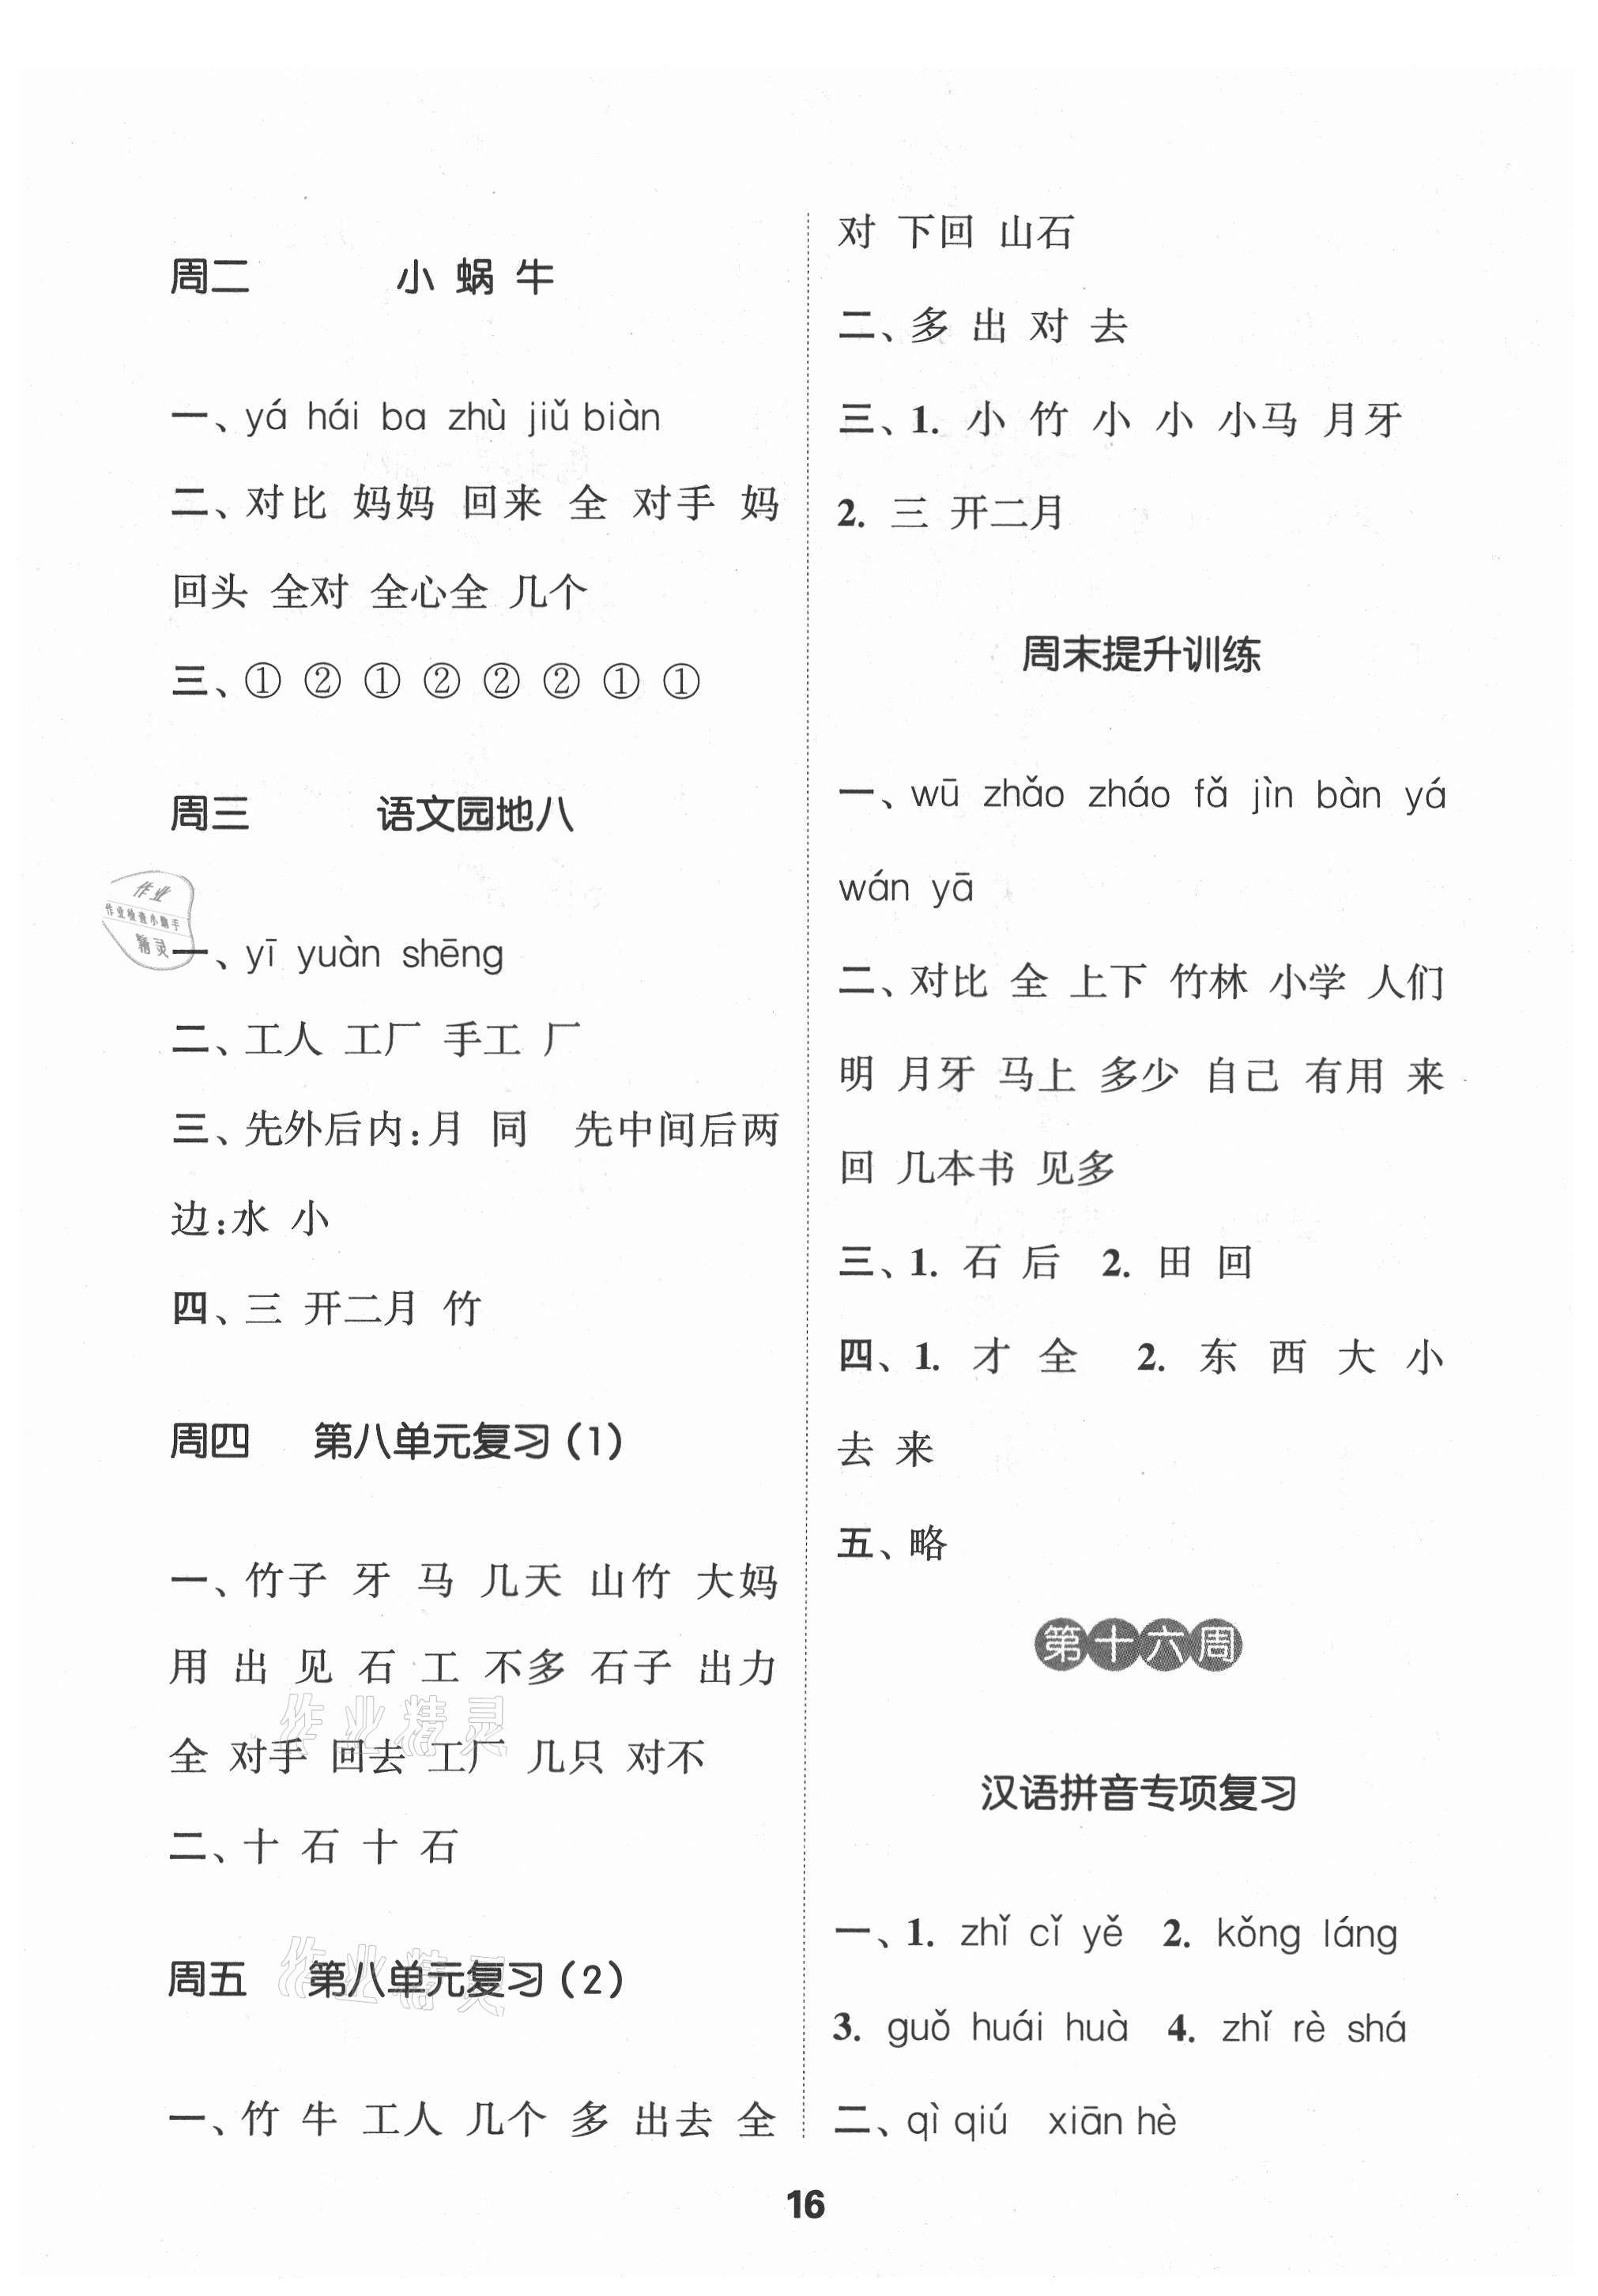 周二 小 蜗 牛
一、yá hái ba zhù jiǔ biàn
二、对比 妈妈 回来 全 对手 妈
回头 全对 全心全 几个
三、① ② ① ② ② ② ① ①
周三 语文园地八
作业
作业检查小助手
精灵
一、yī yuàn shēng
二、工人 工厂 手工 厂
三、先外后内:月 同 先中间后两
边:水 小
四、三 开二月 竹
周四 第八单元复习(1)
一、竹子 牙 马 几天 山竹 大妈
用 出 见 石 工 不多 石子 出力
作业精灵
全 对手 回去 工厂 几只 对不
二、十 石 十 石
周五 第八单元复习(2)
作业精灵
一、竹 牛 工人 几个 多 出去 全
对 下回 山石
二、多 出 对 去
三、1. 小 竹 小 小 小马 月牙
2. 三 开二月
周末提升训练
一、wū zhǎo zháo fǎ jìn bàn yá
wán yā
二、对比 全 上下 竹林 小学 人们
明 月牙 马上 多少 自己 有用 来
回 几本书 见多
三、1. 石 后 2. 田 回
四、1. 才 全 2. 东 西 大 小
去 来
五、略
第十六周
汉语拼音专项复习
一、1. zhǐ cǐ yě 2. kǒng láng
3. guǒ huái huà 4. zhǐ rè shá
二、qì qiú xiān hè
16